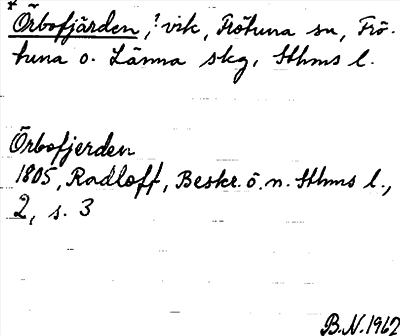 *Örbofjärden, ? vik, Frötuna sn, Frö-
tuna o. Länna skg, Sthms l.
Örbofjerden
1805, Radloff, Beskr. ö. n. Sthms l.,
2, s. 3
B.N. 1962